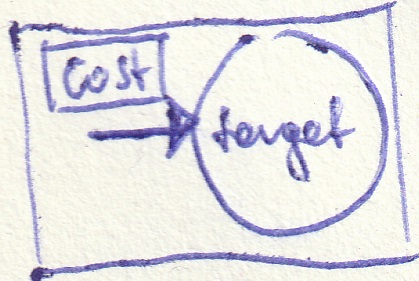 cost
target